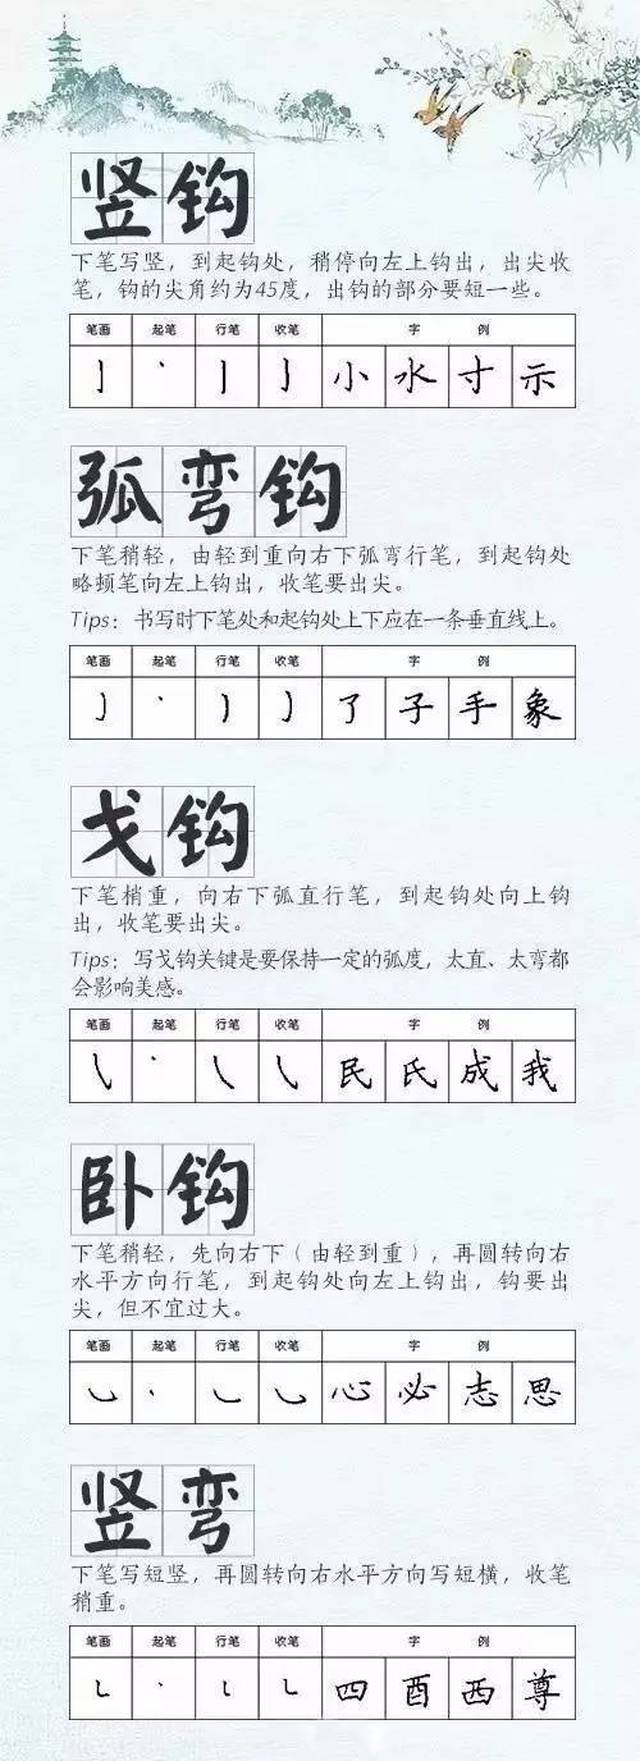 竖钩
下笔写竖，到起钩处，稍停向左上钩出，出尖收
笔，钩的尖角约为45度，出钩的部分要短一些。
笔画 起笔 行笔 收笔 字 例
小 水 寸 示
弧弯钩
下笔稍轻，由轻到重向右下弧弯行笔，到起钩处
略顿笔向左上钩出，收笔要出尖。
Tips：书写时下笔处和起钩处上下应在一条垂直线上。
笔画 起笔 行笔 收笔 字 例
了 子 手 象
戈钩
下笔稍重，向右下弧直行笔，到起钩处向上钩
出，收笔要出尖。
Tips：写戈钩关键是要保持一定的弧度，太直、太弯都
会影响美感。
笔画 起笔 行笔 收笔 字 例
民 氏 成 我
卧钩
下笔稍轻，先向右下（由轻到重），再圆转向右
水平方向行笔，到起钩处向左上钩出，钩要出
尖，但不宜过大。
笔画 起笔 行笔 收笔 字 例
心 必 志 思
竖弯
下笔写短竖，再圆转向右水平方向写短横，收笔
稍重。
笔画 起笔 行笔 收笔 字 例
四 酉 西 尊